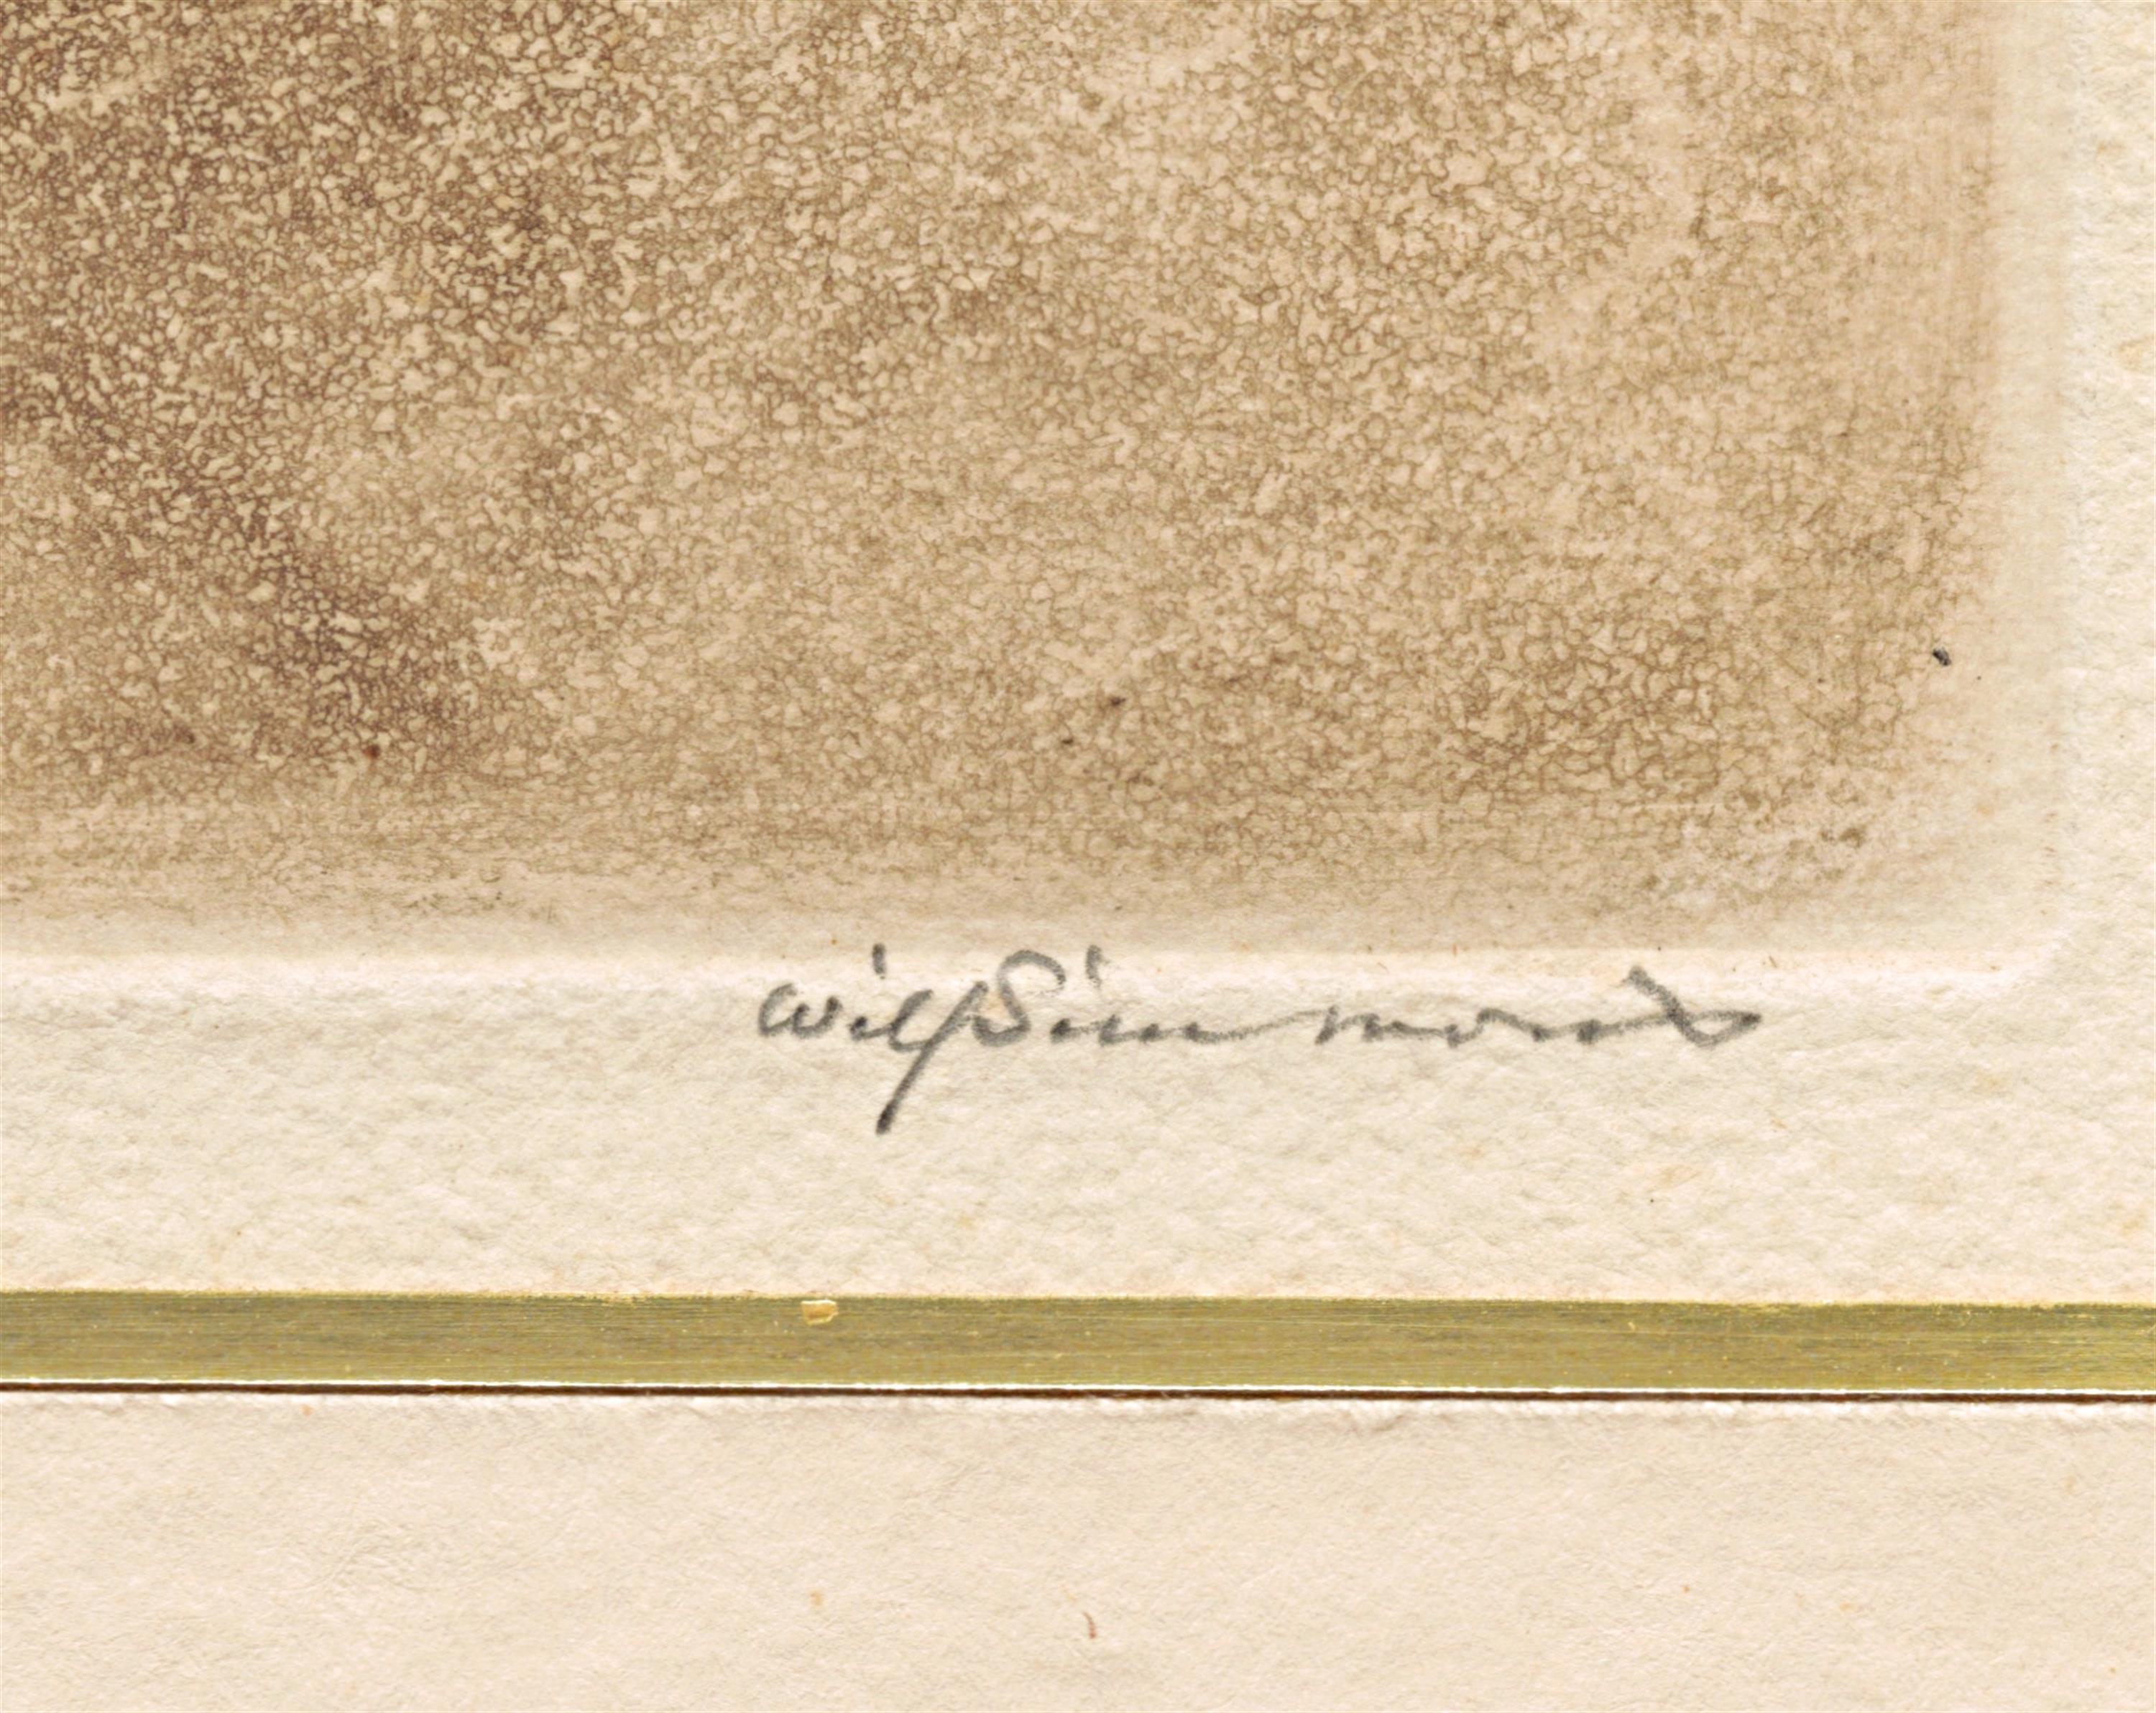 Will Simmons